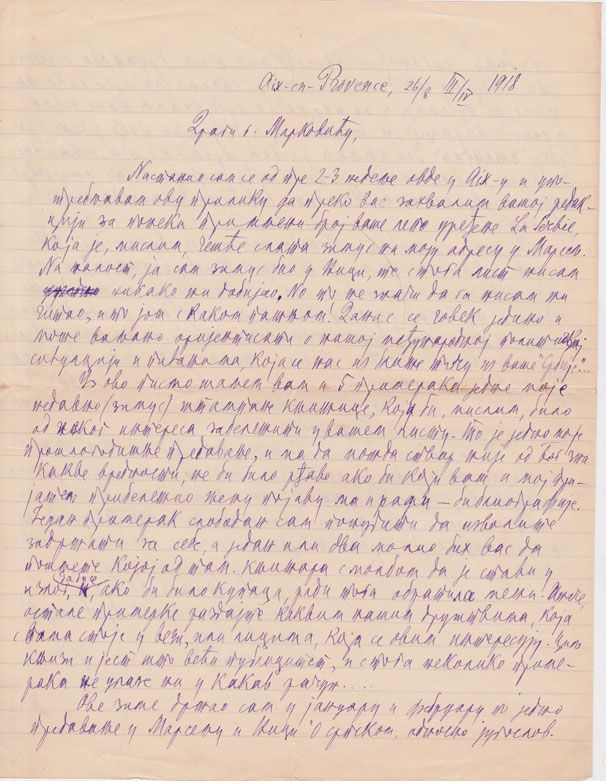 Aix-en-Provence, 26/8 III/IV 1918
Драги г. Марковићу,
Настанио сам се од пре 2-3 недеље овде у Aix-у и упо-
требљавам ову прилику да преко вас захвалим вашој редак-
цији за понеки примљени број ваше лепо уређене La Serbie,
која је, мислим, чешће слата зимус на моју адресу у Марсељ.
На жалост, ја сам зимус био у Ници, те стога лист нисам
никако ни добијао. Но то не значи да га нисам ни
читао, и то још с каквом пажњом! Данас се човек једино и
може ваљано оријентисати о нашој међународној политичкој
ситуацији и питањима, која се нас из ваше "Србије"...
Уз ово писмо шаљем вам и 5 примерака једне моје
недавно (зимус) штампане књижице, која би, мислим, било
од неког интереса забележити у вашем листу. То је једно моје
прошлогодишње предавање, и ма да можда ствар није од бог зна
какве вредности, не би било рђаво ако би који ваш и мој при-
јатељ прибележио њену појаву ма и ради – библиографије.
Један примерак слободан сам понудити да изволите
задржати за себе, а један или два молио бих вас да
пошљете којој од там. књижара с молбом да је стави у
излог, ако би било купаца, ради тога обратила мени.
остале примерке раздајте каквим нашим друштвима, која
с вама стоје у вези, или лицима, која се овим интересују. Циљ
књизи и јест што већи публицитет, и стога неколико приме-
рака не улазе ни у какав рачун....
Ове зиме држао сам у јануару и фебруару по једно
предавање у Марсељу и Ници "О српском, односно југослов.